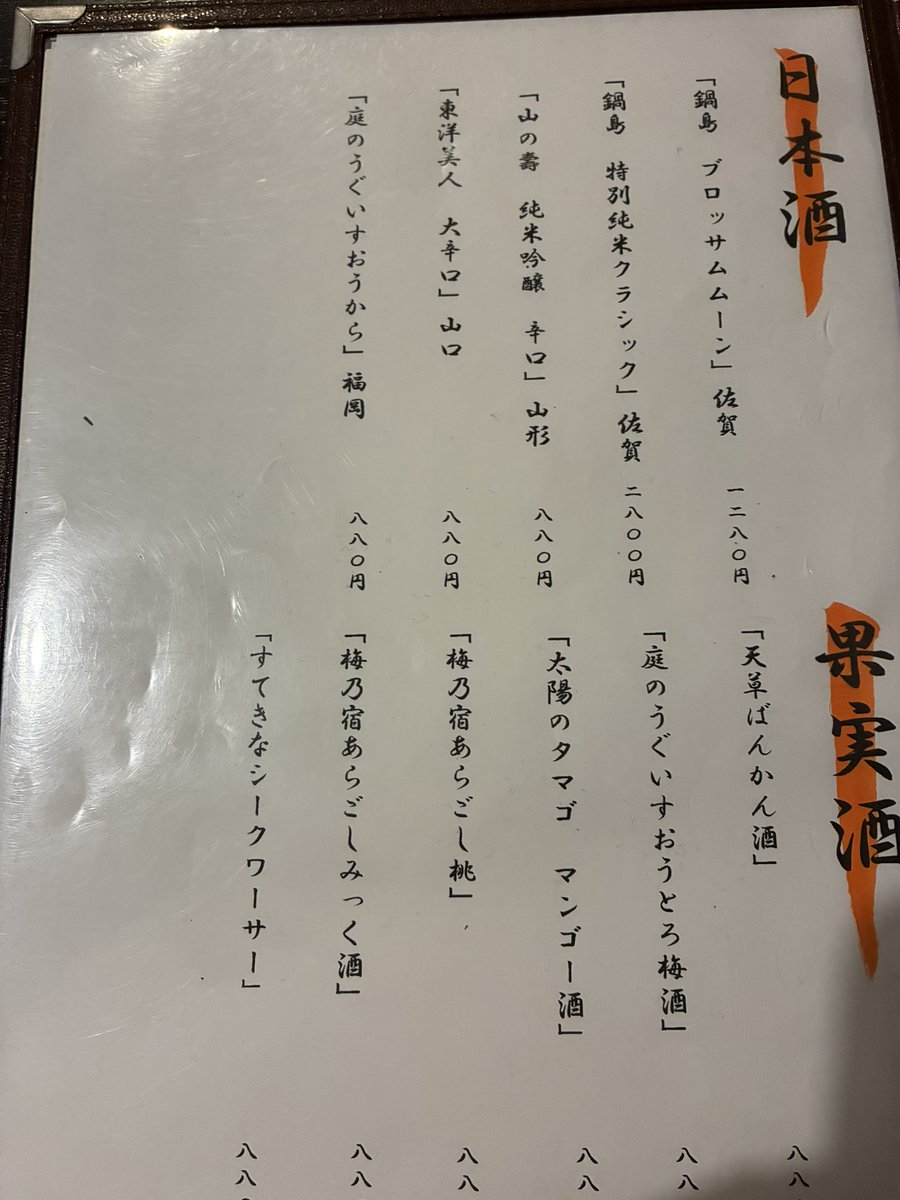 日本酒
「鍋島 ブロッサムムーン」佐賀 一二八〇円
「鍋島 特別純米クラシック」佐賀 二八〇〇円
「山の壽 純米吟醸 辛口」山形 八八〇円
「東洋美人 大辛口」山口 八八〇円
「庭のうぐいすおうから」福岡 八八〇円
果実酒
「天草ばんかん酒」 八八
「庭のうぐいすおうとろ梅酒」 八八
「太陽のタマゴ マンゴー酒」 八八
「梅乃宿あらごし桃」 八八
「梅乃宿あらごしみっく酒」 八八
「すてきなシークワーサー」 八八